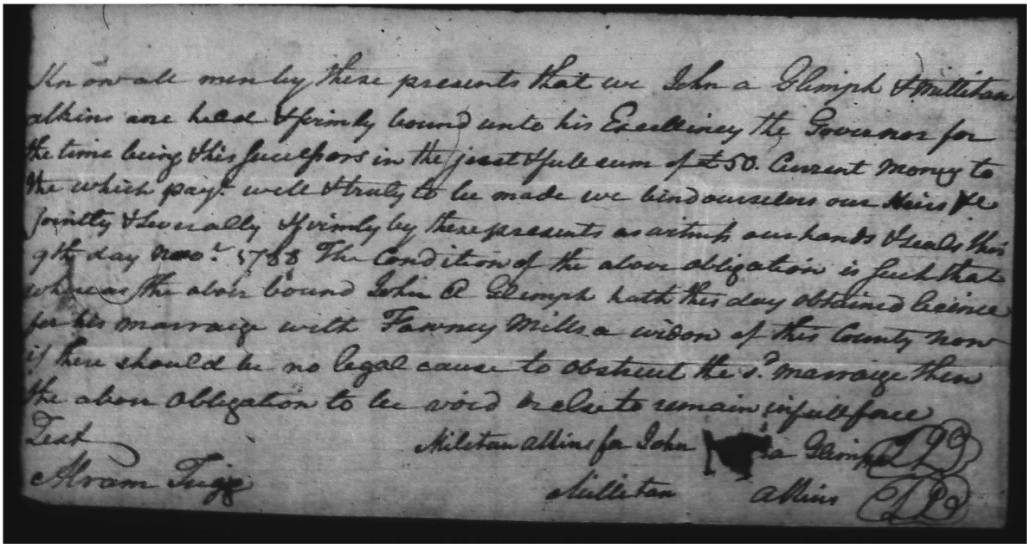 Know all men by these presents that we John a Glimph & Millitan
adkins are held & firmly bound unto his Excelliney the Governor for
the time being & his Successors in the just & full sum of £50. Current money to
the which pay.t well & truly to be made we bind ourselves our Heirs &c
jointly & severally & firmly by these presents as witness our hands & seals this
9th day Nov.r 1788 The Condition of the above obligation is such that
whereas the above bound John A Glimph hath this day obtained licence
for his marraige with Fawney Mills a widow of this County now
if there should be no legal cause to obstruct the s.d marraige then
the above obligation to be void or else to remain in full force
Test Militan adkins for John a Glimph LS
Abram Trigg Millitan adkins LS